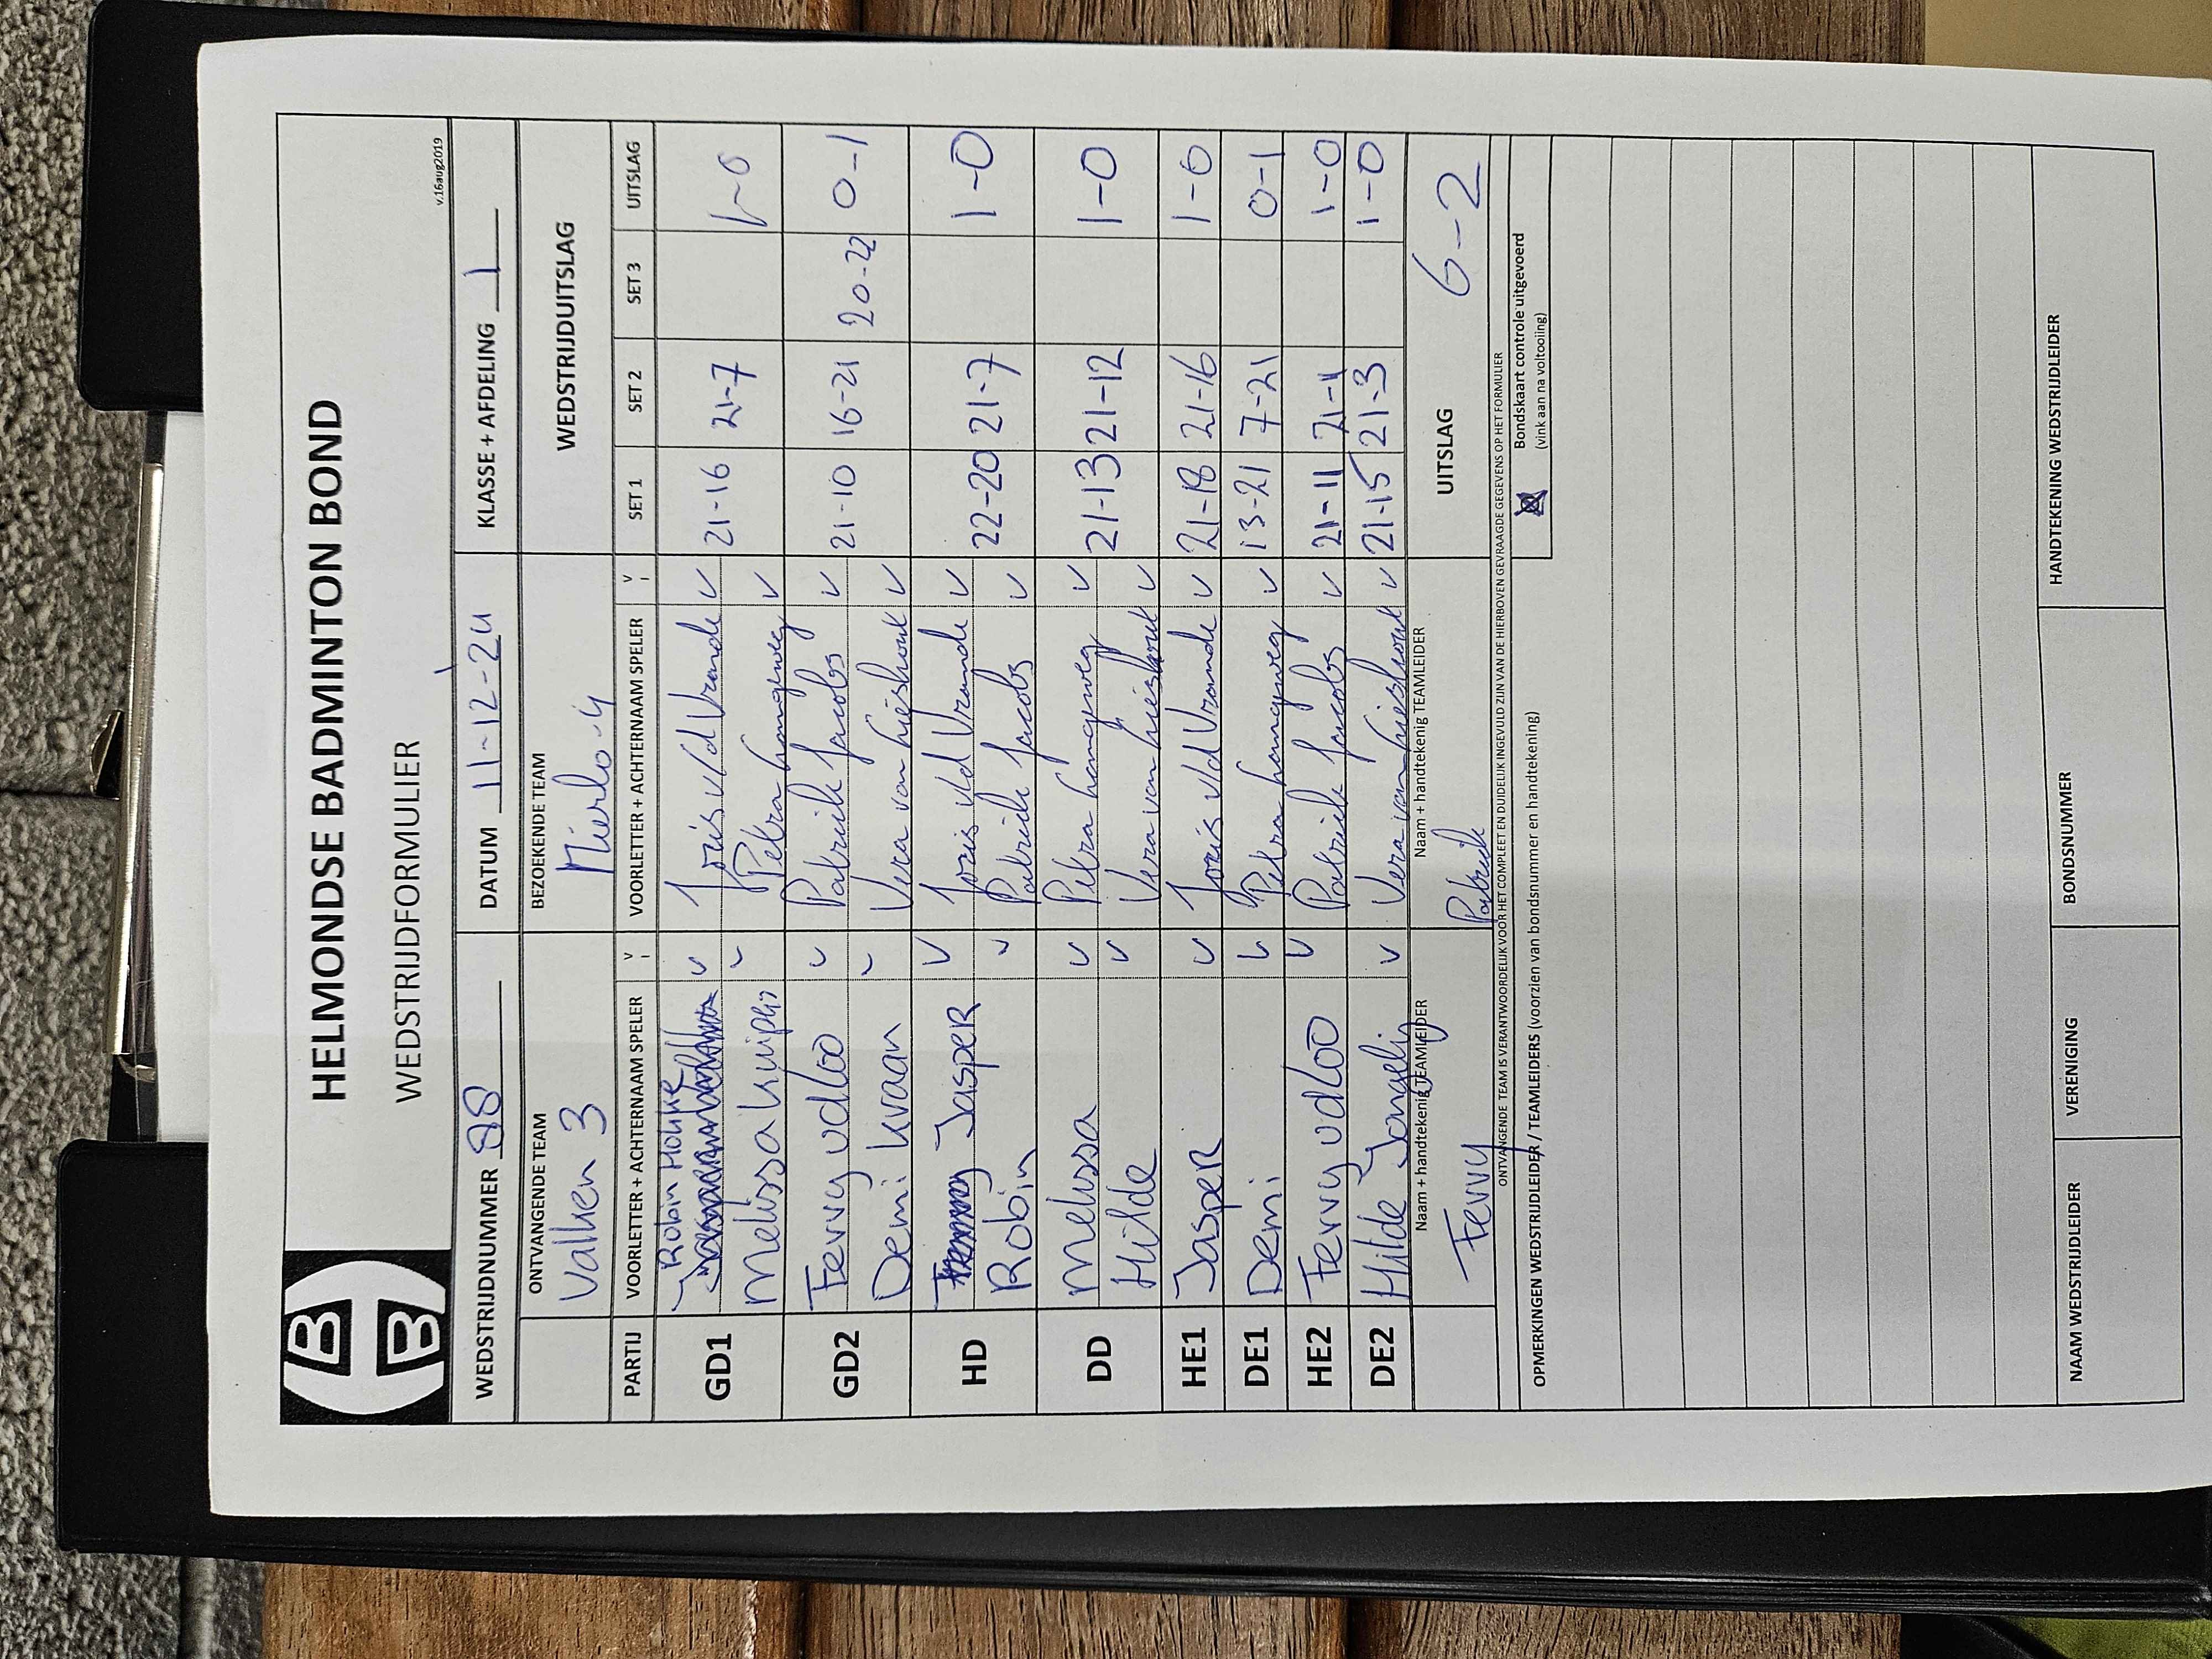 HELMONDSE BADMINTON BOND
WEDSTRIJDFORMULIER
v.16aug2019
WEDSTRIJDNUMMER 88 DATUM 11-12-24 KLASSE + AFDELING 1
ONTVANGENDE TEAM BEZOEKENDE TEAM WEDSTRIJDUITSLAG
Valken 3 Mierlo-4
PARTIJ VOORLETTER + ACHTERNAAM SPELER V VOORLETTER + ACHTERNAAM SPELER V SET 1 SET 2 SET 3 UITSLAG
GD1 Robin Joris v/d Vrande 21-16 21-7 1-0
Melissa Petra
GD2 Ferry vd Loo Patrick Jacobs 21-10 16-21 20-22 0-1
Demi Kraan Vera van Lieshout
HD Jasper Joris v/d Vrande 22-20 21-7 1-0
Robin Patrick Jacobs
DD Melissa Petra 21-13 21-12 1-0
Hilde Vera van Lieshout
HE1 Jasper Joris v/d Vrande 21-18 21-16 1-0
DE1 Demi Petra 13-21 7-21 0-1
HE2 Ferry vd Loo Patrick Jacobs 21-11 1-0
DE2 Hilde Vera van Lieshout 21-15 21-3 1-0
Naam + handtekenig TEAMLEIDER Naam + handtekenig TEAMLEIDER UITSLAG 6-2
Ferry Patrick
ONTVANGENDE TEAM IS VERANTWOORDELIJK VOOR HET COMPLEET EN DUIDELIJK INGEVULD ZIJN VAN DE HIERBOVEN GEVRAAGDE GEGEVENS OP HET FORMULIER
OPMERKINGEN WEDSTRIJDLEIDER / TEAMLEIDERS (voorzien van bondsnummer en handtekening)
Bondskaart controle uitgevoerd
(vink aan na voltooiing)
NAAM WEDSTRIJDLEIDER VERENIGING BONDSNUMMER HANDTEKENING WEDSTRIJDLEIDER